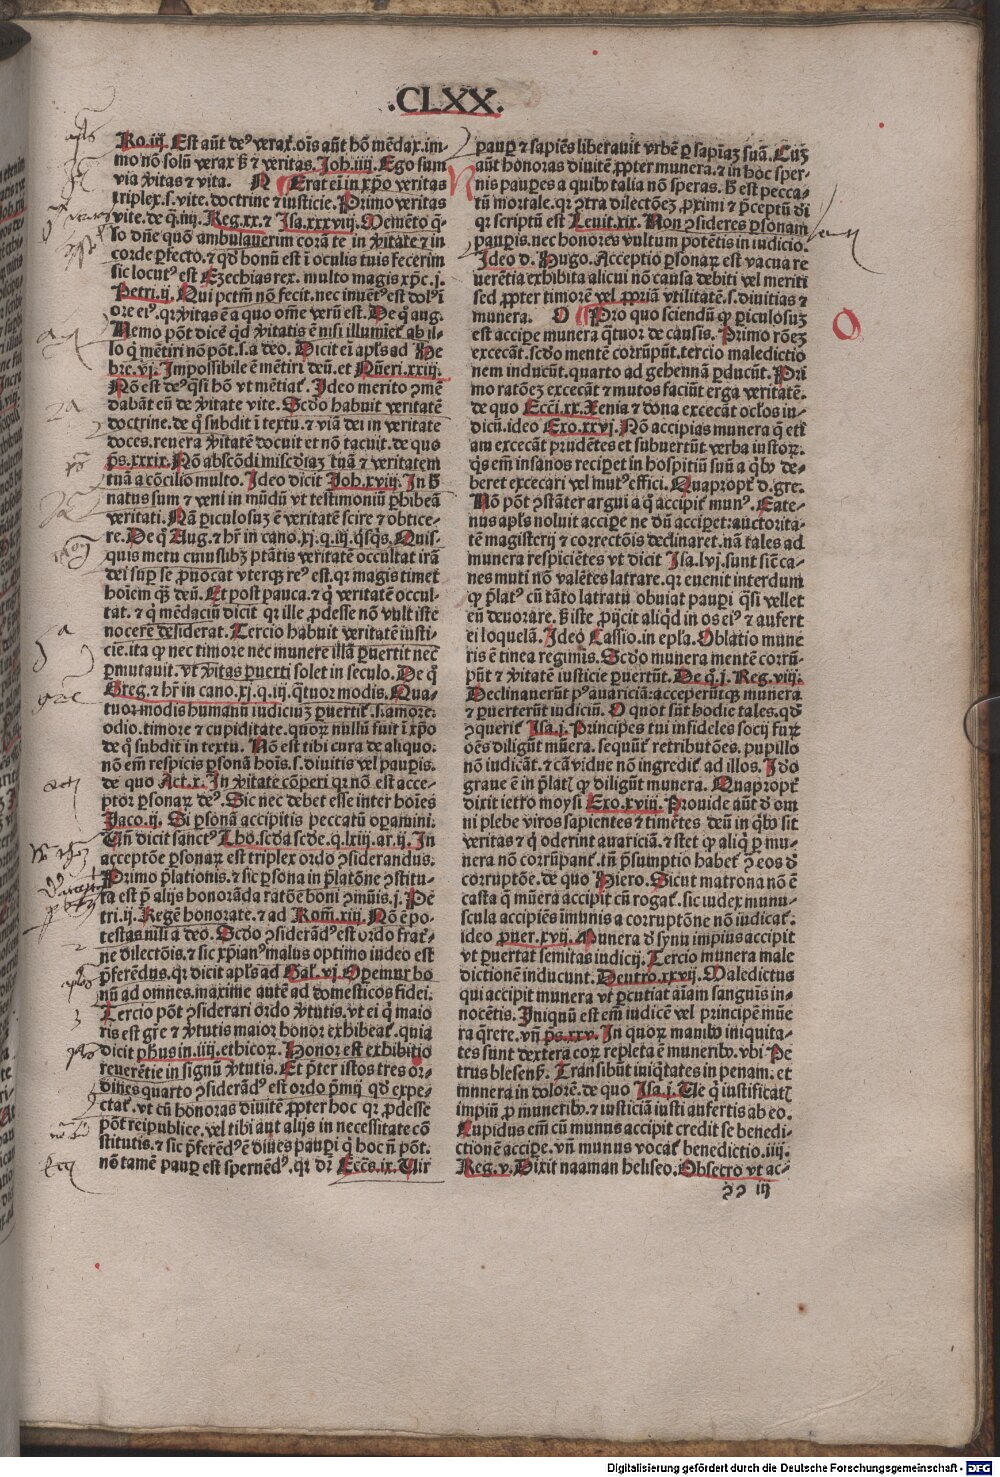 .CLXX.
Ro.iij. Est aūt de⁹ verax̄. oīs aūt hō mēdax. im-
mo nō solū verax ꝫ ⁊ veritas. Joh. iiij. Ego sum
via v̄itas ⁊ vita. N Erat ei in xp̄o veritas
triplex. s. vite. doctrine ⁊ iusticie. Primo veritas
vite. de q̄. iiij. Reg. xx. ⁊ Isa. xxxviij. Memēto q̄-
so dn̄e quō ambulauerim corā te in v̄itate ⁊ in
corde ꝑfecto. ⁊ qd̄ bonū est ī oculis tuis fecerim
sic locut⁹ est Ezechias rex. multo magis xp̄c. j.
Petri. ij. Qui pctm̄ nō fecit. nec inuēt⁹ est dol⁹ ī
ore ei⁹. qꝛ v̄itas ē a quo om̄e verū est. De q̄ aug.
Nemo pōt dicē qd̄ v̄itatis ē nisi illumīet̄ ab il-
lo q̄ mētiri nō pōt. s. a deo. Dicit ei apl̄s ad He
bre. vj. Impossibile ē mētiri deū. et Nūeri. xxiij.
Nō est de⁹ q̄si hō vt mētiat̄. Ideo merito ꝯmē
dabāt eū de v̄itate vite. Scd̄o habuit veritatē
doctrine. de q̄ subdit ī textu. ⁊ viā dei in veritate
doces. reuera v̄itatē docuit et nō tacuit. de quo
p̄s. xxxix. Nō abscōdi misc̄diaꝫ tuā ⁊ veritatem
tuā a cōcilio multo. Ideo dicit Joh. xviij. In ꝫ
natus sum ⁊ veni in mūdū vt testimoniū ꝑhibeā
veritati. Nā ꝑiculosuꝫ ē veritatē scire ⁊ obtice-
re. De q̄ Aug. ⁊ hr̄ in cano. xj. q. iij. q̄sq̄s. Quis-
quis metu cuiuslibꝫ ptātis veritatē occultat irā
dei suꝑ se ꝓuocat vterqꝫ re⁹ est. qꝛ magis timet
hoīem qꝫ deū. Et post pauca. ⁊ q̄ veritatē occul-
tat. ⁊ q̄ mēdaciū dicit qꝛ ille ꝓdesse nō vult iste
nocere desiderat. Tercio habuit veritatē iusti-
cie. ita ꝙ nec timore nec munere illā ꝑuertit nec
ꝑmutauit. vt v̄itas ꝑuerti solet in seculo. De q̄
Greg. ⁊ hr̄ in cano. xj. q. iij. q̄tuor modis. Qua-
tuor modis humanū iudiciuꝫ ꝑuertit̄. s. amore.
odio. timore ⁊ cupiditate. quoꝝ nullū fuit ī xp̄o
de q̄ subdit in textu. Nō est tibi cura de aliquo.
nō em̄ respicis ꝑsonā hoīs. s. diuitis vel pauꝑis.
de quo Act. x. In v̄itate cōperi qꝛ nō est acce-
ptor ꝑsonaꝝ de⁹. Sic nec debet esse inter hoīes
Jaco. ij. Si ꝑsonā accipitis peccatū oꝑamini.
Uñ dicit sanct⁹ Tho. scd̄a scd̄e. q. lxiij. ar. ij. In
acceptōe ꝑsonaꝝ est triplex ordo ꝯsiderandus.
Primo p̄lationis. ⁊ sic ꝑsona in p̄latōne ꝯstitu-
ta est p̄ alijs honorāda ratōe boni ꝯmūis. j. Pe
tri. ij. Regē honorate. ⁊ ad Rom̄. xiij. Nō ē po-
testas nisi a deo. Scd̄o ꝯsiderād⁹ est ordo frat̄-
ne dilectōis. ⁊ sic xp̄ian⁹ malus optimo iudeo est
p̄ferēdus. qꝛ dicit apl̄s ad Gal̄. vj. Oꝑemur bo
nū ad omnes. maxime autē ad domesticos fidei.
Tercio pōt ꝯsiderari ordo v̄tutis. vt ei q̄ maio
ris est gr̄e ⁊ v̄tutis maior honor exhibeat̄. quia
dicit ph̄us in. iiij. ethicoꝝ. Honor est exhibitio
reuerētie in signū v̄tutis. Et p̄ter istos tres or-
dines quarto ꝯsiderād⁹ est ordo p̄mij qd̄ expe-
ctat̄. vt cū honoras diuitē ꝓpter hoc qꝛ ꝓdesse
pōt reipublice. vel tibi aut alijs in necessitate cō
stitutis. ⁊ sic p̄ferēd⁹ ē diues pauꝑi q̄ hoc ñ pōt.
nō tamē pauꝑ est spernēd⁹. qꝛ dr̄ Eccs̄. ix. Uir
pauꝑ ⁊ sapiēs liberauit vrbē ꝑ sapīaꝫ suā. Cuꝫ
aūt honoras diuitē ꝓpter munera. ⁊ in hoc sper-
nis pauꝑes a quibꝰ talia nō speras. ꝫ est pecca-
tū mortale. qꝛ ꝯtra dilectōeꝫ ꝓximi ⁊ p̄ceptū di
qꝛ scriptū est Leuit. xix. Non ꝯsideres ꝑsonam
pauꝑis. nec honores vultum potētis in iudicio.
Ideo d. Hugo. Acceptio ꝑsonaꝝ est vacua re
uerētia exhibita alicui nō causa debiti vel meriti
sed ꝓpter timorē vel ꝓpriā vtilitatē. s. diuitias ⁊
munera. O Pro quo sciendū ꝙ ꝑiculosuꝫ
est accipe munera q̄tuor de causis. Primo rōeꝫ
excecāt. scd̄o mentē corrūpūt. tercio maledictio
nem inducūt. quarto ad gehennā ꝑducūt. Pri
mo ratōeꝫ excecāt ⁊ mutos faciūt erga veritatē.
de quo Ecc̄i. xx. Xenia ⁊ dona excecāt ocl̄os iu-
dicū. ideo Exo. xxvj. Nō accipias munera q̄ eti
am excecāt prudētes et subuertūt verba iustoꝝ.
q̄s em̄ insanos recipet in hospitiū suū a q̄bꝰ de-
beret excecari vel mut⁹ effici. Quapropt̄ d. gre.
Nō pōt ꝯstāter argui a q̄ accipit̄ mun⁹. Eate-
nus apl̄s noluit accipe ne dū acciperet auctorita-
tē magisterij ⁊ correctōis declinaret. nā tales ad
munera respiciētes vt dicit Isa. lvj. sunt siē ca-
nes muti nō valētes latrare. qꝛ euenit interdum
ꝙ p̄lat⁹ cū tāto latratu obuiat pauꝑi q̄si vellet
eū deuorare. ꝫ iste ꝓijcit aliqd̄ in os ei⁹ ⁊ aufert
ei loquelā. Ideo Cassio. in epl̄a. Oblatio mune
ris ē tinea regimīs. Scd̄o munera mentē corrū-
pūt ⁊ v̄itatē iusticie ꝑuertūt. De q̄. j. Reg. viij.
Declinauerūt p⁹ auariciā: acceperūtqꝫ munera
⁊ ꝑuerterūt iudiciū. O quot sūt hodie tales. qd̄
ꝯquerit̄ Isa. j. Principes tui infideles socij furꝝ
oēs diligūt mūera. sequūt̄ retributōes. pupillo
nō iudicāt. ⁊ cā vidue nō ingredit̄ ad illos. Ido
graue ē in p̄lat̄ ꝙ diligūt munera. Quapropt̄
dixit ietro moysi Exo. xviij. Prouide aūt d̄ om
ni plebe viros sapientes ⁊ timētes deū in q̄bꝰ sit
veritas ⁊ q̄ oderint auariciā. ⁊ stet ꝙ aliq̄ ꝑ mu-
nera nō corrūpant̄. tn̄ p̄sumptio habet̄ ꝯ eos d̄
corruptōe. de quo Hiero. Sicut matrona nō ē
casta q̄ mūera accipit cū rogat̄. sic iudex munu-
scula accipiēs īmunis a corruptōne nō iudicat̄.
ideo ꝓuer. xvij. Munera d̄ synu impius accipit
vt ꝑuertat semitas iudicij. Tercio munera male
dictionē inducunt. Deutro. xxvij. Maledictus
qui accipit munera vt ꝑcutiat aīam sanguīs in-
nocētis. Iniquū est em̄ iudicē vel principē mūe
ra q̄rere. vñ p̄s. xxv. In quoꝝ manibꝰ iniquita-
tes sunt dextera eoꝝ repleta ē muneribꝰ. vbi Pe
trus blesens̄. Transibūt iniq̄tates in penam. et
munera in dolorē. de quo Isa. j. Ue q̄ iustificat̄
impiū ꝓ muneribꝰ. ⁊ iusticiā iusti aufertis ab eo.
Cupidus em̄ cū munus accipit credit se benedi-
ctionē accipe. vñ munus vocat̄ benedictio. iiij.
Reg. v. Dixit naaman heliseo. Obsecro vt ac-
ꝯꝯ iij
O
Digitalisierung gefördert durch die Deutsche Forschungsgemeinschaft - DFG